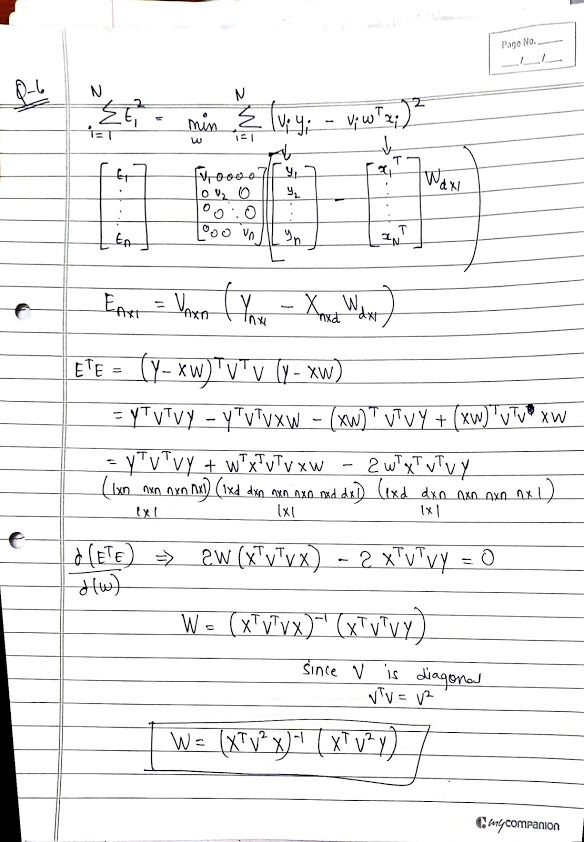 Page No.
Q-6
N N
Σ ε_i² = min_w Σ (v_i y_i - v_i wᵀx_i)²
i=1 i=1
[ε₁ ⋮ εₙ] [v₁ 0 0 0 0; 0 v₂ 0; 0 0 ⋱ 0; 0 0 0 vₙ] ([y₁ y₂ ⋮ yₙ] - [x₁ᵀ ⋮ x_Nᵀ] W_{d×1})
E_{n×1} = V_{n×n} (Y_{n×1} - X_{n×d} W_{d×1})
EᵀE = (Y-XW)ᵀVᵀV (Y-XW)
= YᵀVᵀVY - YᵀVᵀVXW - (XW)ᵀVᵀVY + (XW)ᵀVᵀV XW
= YᵀVᵀVY + WᵀXᵀVᵀVXW - 2WᵀXᵀVᵀVY
(1xn nxn nxn nx1) (1xd dxn nxn nxn nxd dx1) (1xd dxn nxn nxn nx1)
1x1 1x1 1x1
d(EᵀE)/d(w) ⇒ 2W(XᵀVᵀVX) - 2XᵀVᵀVY = 0
W = (XᵀVᵀVX)⁻¹ (XᵀVᵀVY)
Since V is diagonal
VᵀV = V²
W = (XᵀV²X)⁻¹ (XᵀV²Y)
mycompanion